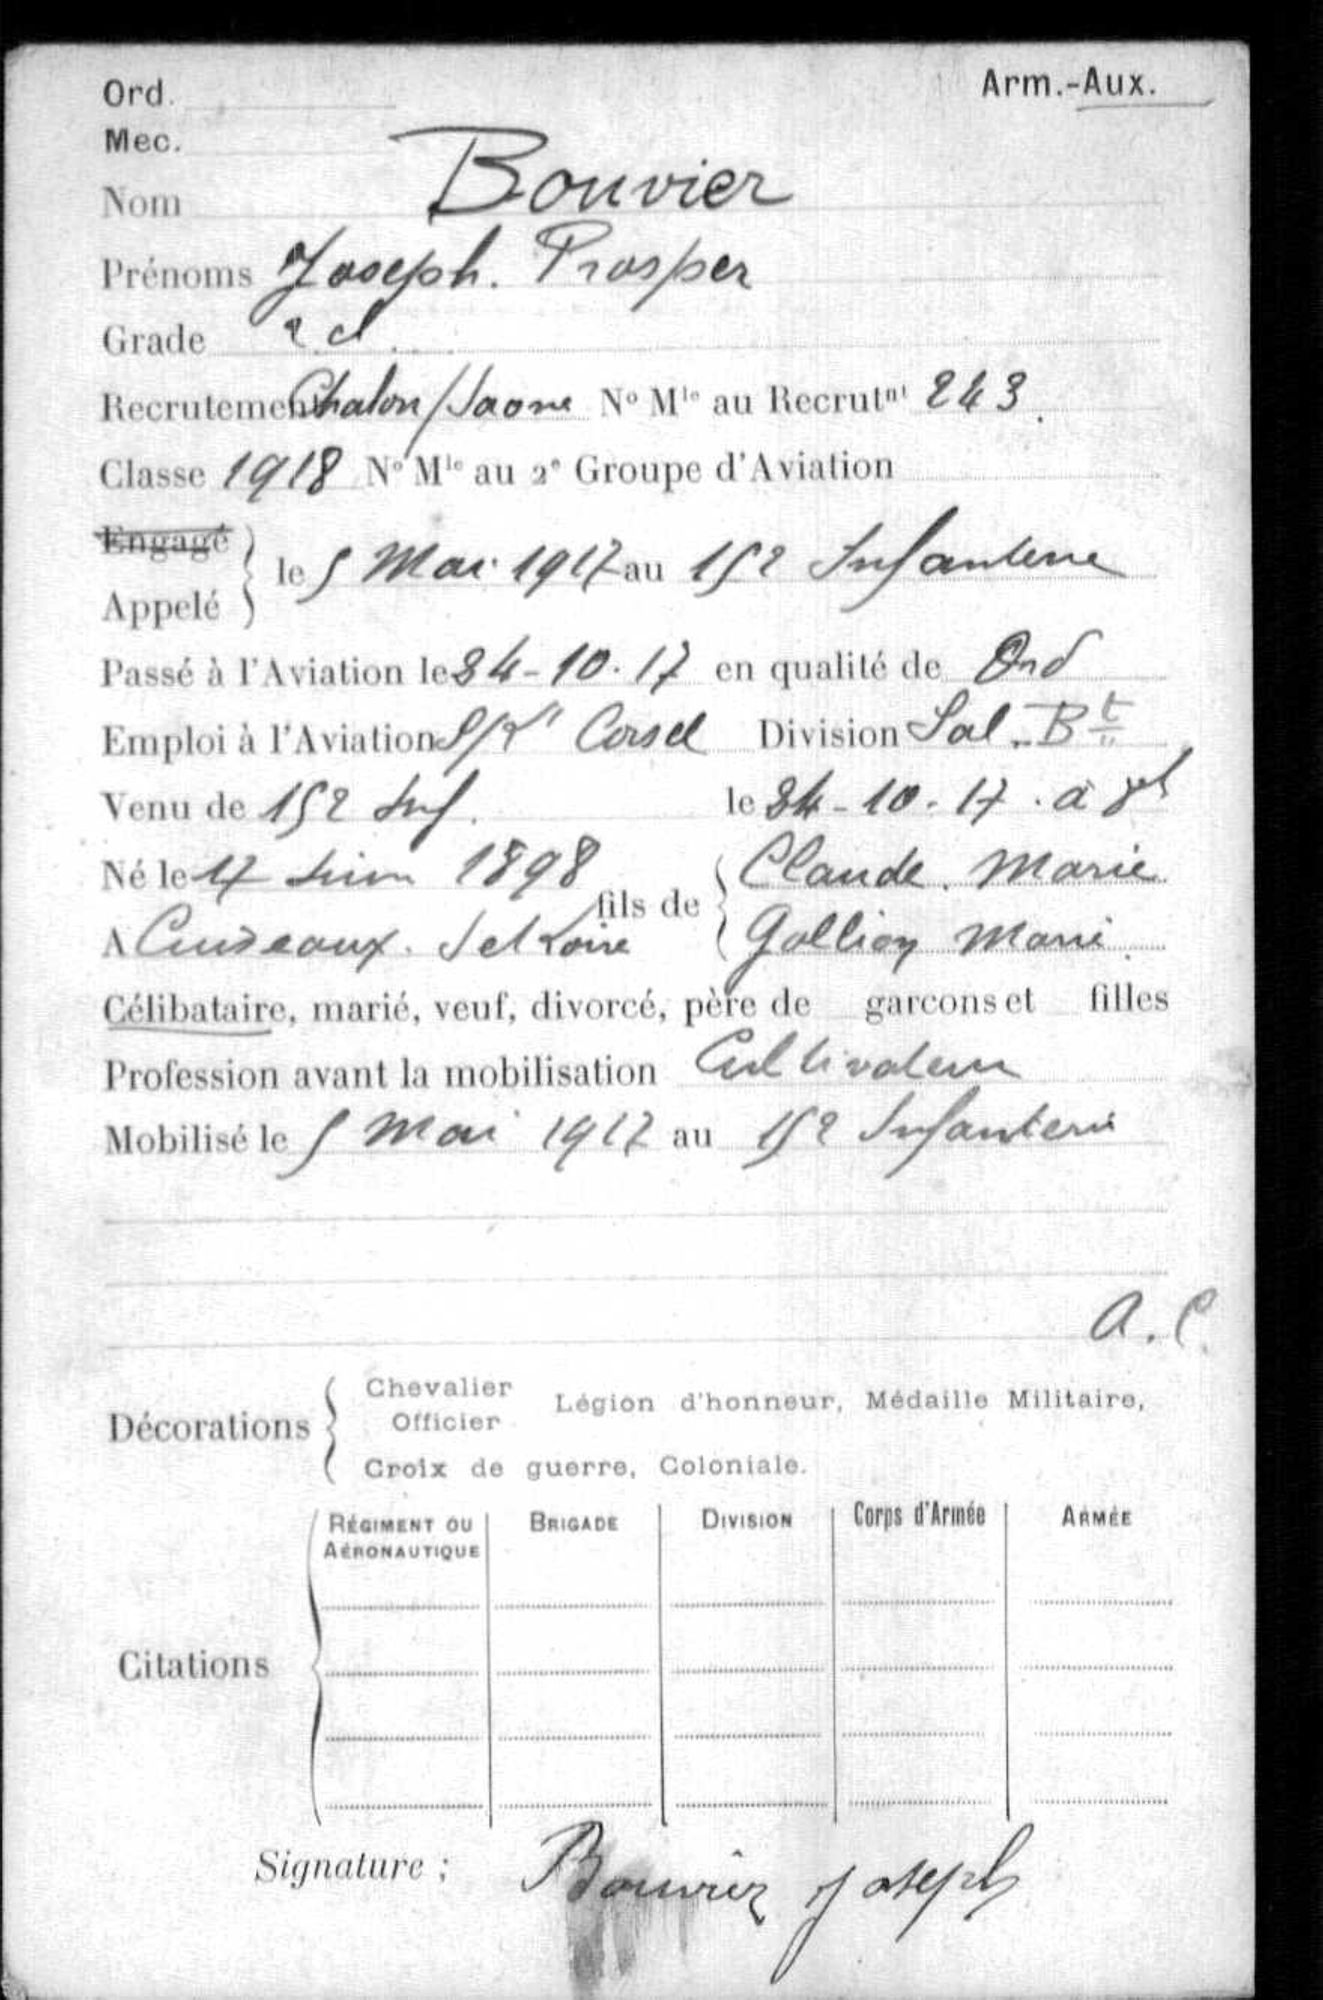 Ord. Arm.-Aux.
Mec.
Nom Bouvier
Prénoms Joseph. Prosper
Grade 2 cl.
Recrutement Chalon/Saone N° Mle au Recrutnt 243.
Classe 1918 N° Mle au 2e Groupe d'Aviation
Engagé
Appelé } le 5 Mai 1917 au 152 Infanterie
Passé à l'Aviation le 24-10-17 en qualité de Ord
Emploi à l'Aviation Division Sal. Bt
Venu de 152 Inf. le 24-10-17. à
Né le 17 Juin 1898 fils de { Claude. Marie
A Cuiseaux. S et Loire Gallion Marie
Célibataire, marié, veuf, divorcé, père de garcons et filles
Profession avant la mobilisation Cultivateur
Mobilisé le 5 Mai 1917 au 152 Infanterie
A. C.
Décorations { Chevalier Légion d'honneur, Médaille Militaire,
Officier
Croix de guerre, Coloniale.
Citations { RÉGIMENT OU AÉRONAUTIQUE BRIGADE DIVISION Corps d'Armée ARMÉE
Signature ; Bouvier Joseph